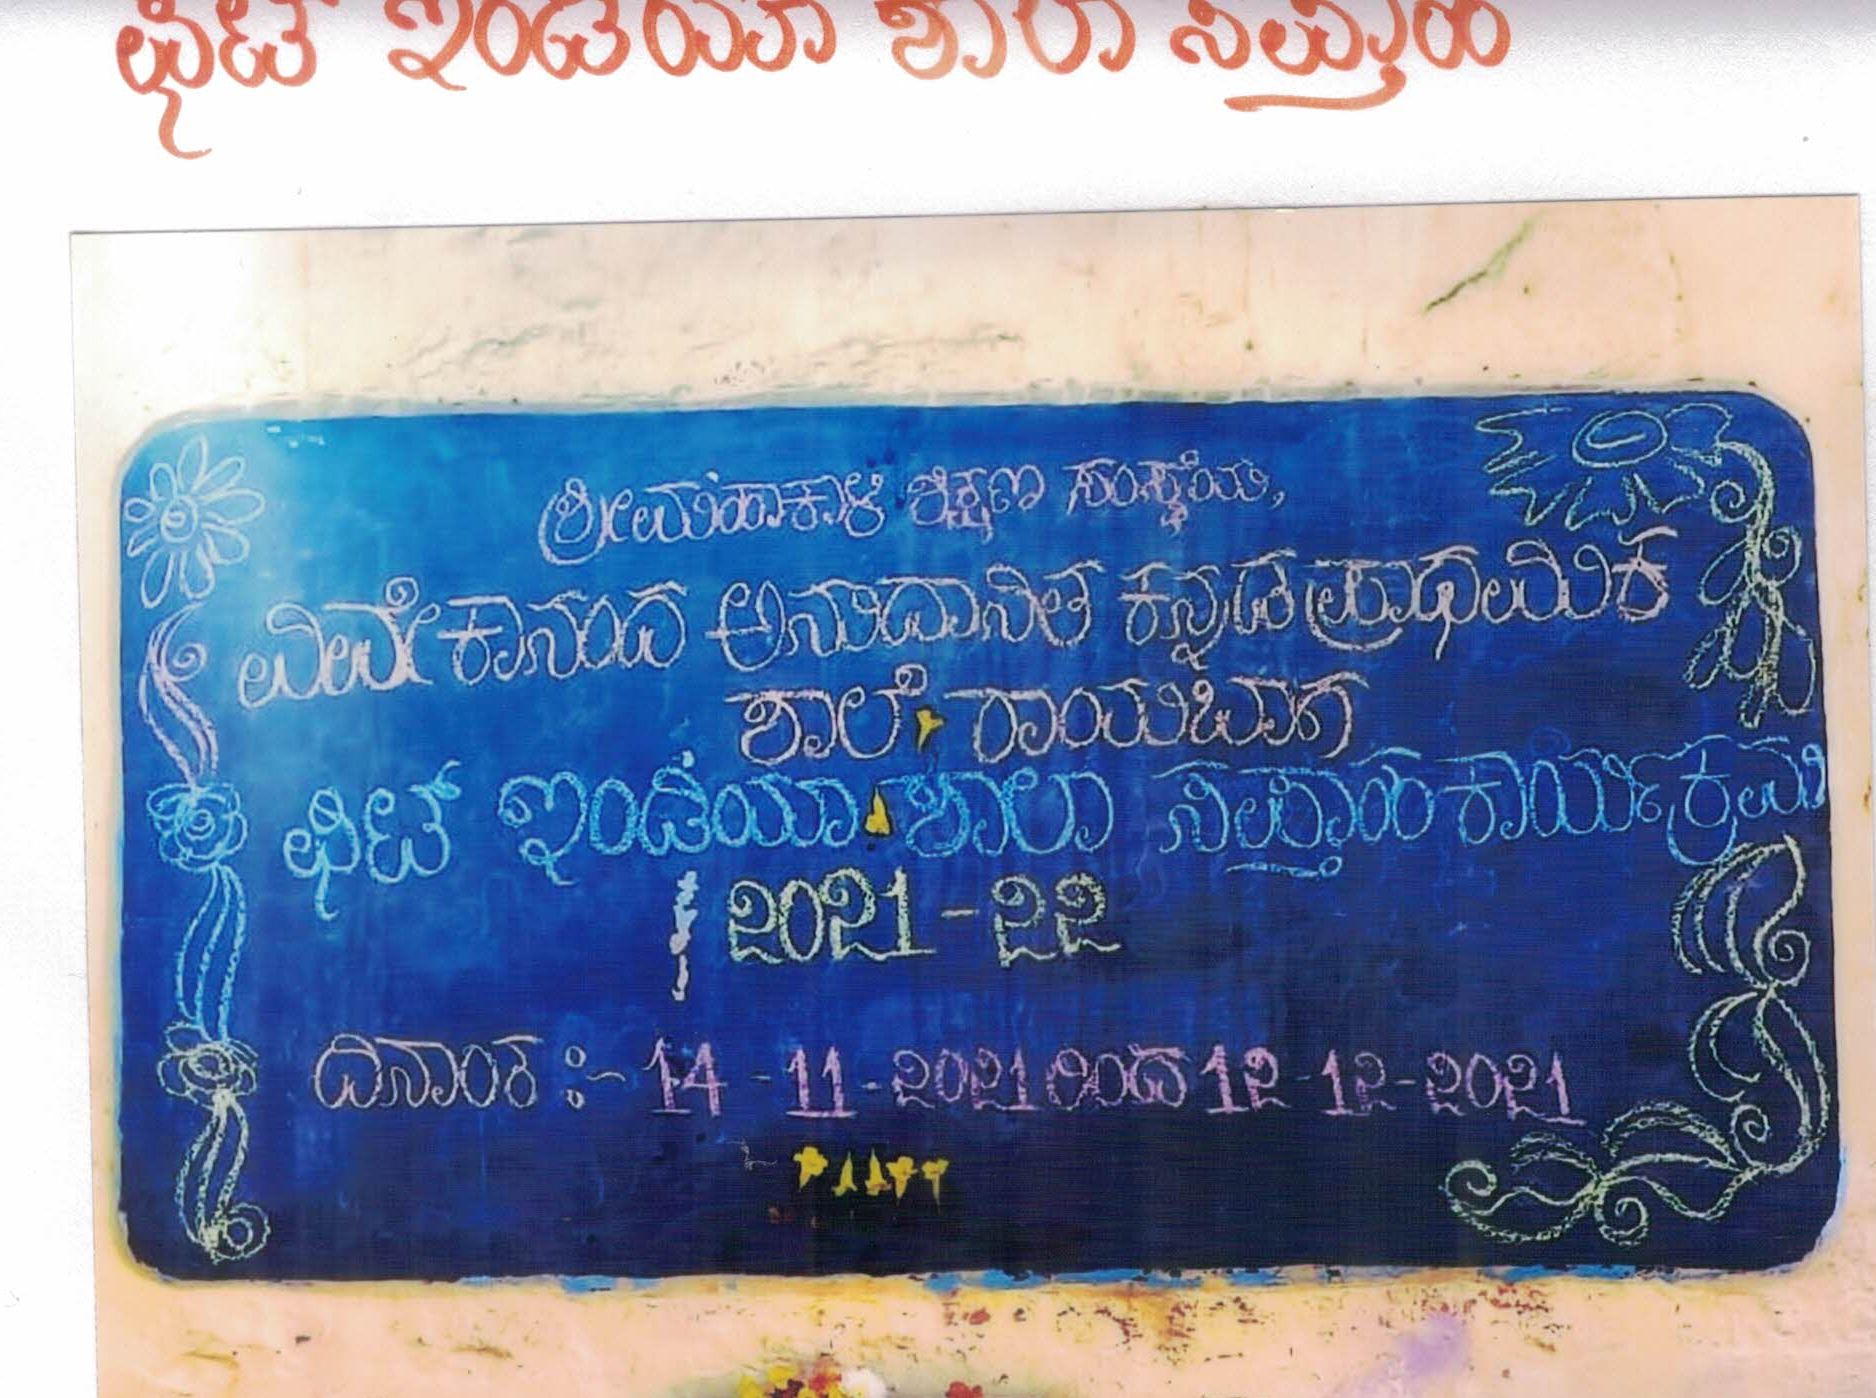 ಫಿಟ್ ಇಂಡಿಯಾ ಶಾಲಾ ಸಪ್ತಾಹ
ಶ್ರೀಮಹಾಕಾಳಿ ಶಿಕ್ಷಣ ಸಂಸ್ಥೆಯ,
ವಿವೇಕಾನಂದ ಅನುದಾನಿತ ಕನ್ನಡ ಪ್ರಾಥಮಿಕ
ಶಾಲೆ ರಾಯಬಾಗ
ಫಿಟ್ ಇಂಡಿಯಾ ಶಾಲಾ ಸಪ್ತಾಹ ಕಾರ್ಯಕ್ರಮ
2021-22
ದಿನಾಂಕ :- 14-11-2021 ರಿಂದ 12-12-2021